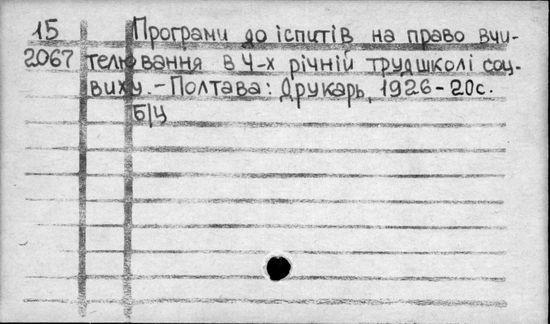 15 Програми до іспитів на право вчи-
2067 телювання в 4-х річній трудшколі соц-
виху.-Полтава: Друкарь, 1926-20с.
б/ц